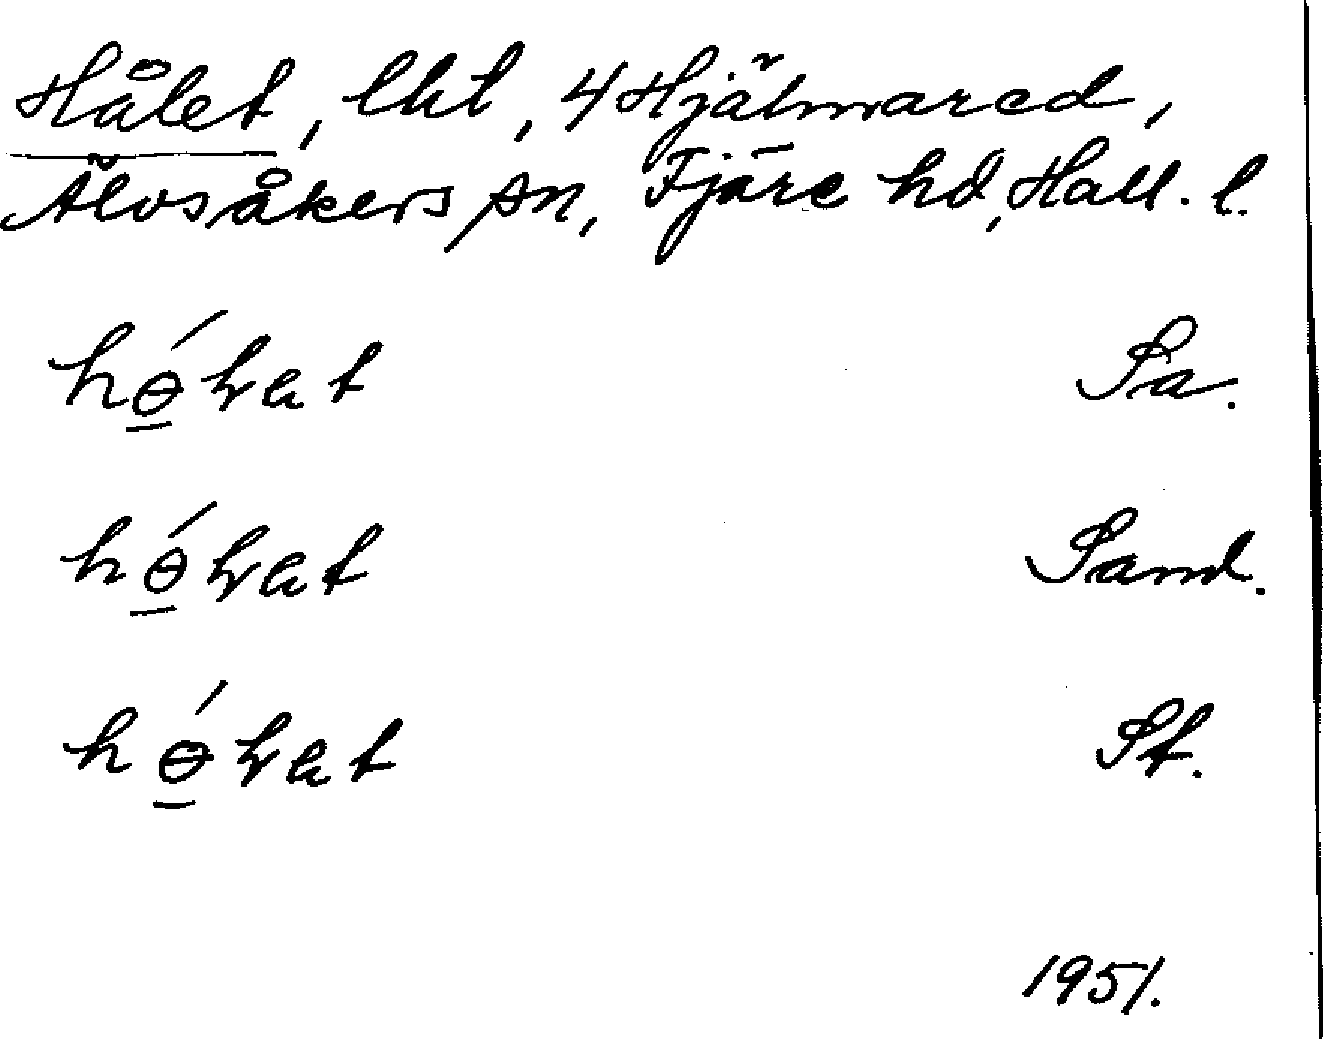 Hålet, lht, 4 Hjälmared,
Älvsåkers sn, Fjäre hd, Hall. l.
hɵ́lat Sa.
hɵ́lat Sand.
hɵ́lat St.
1951.